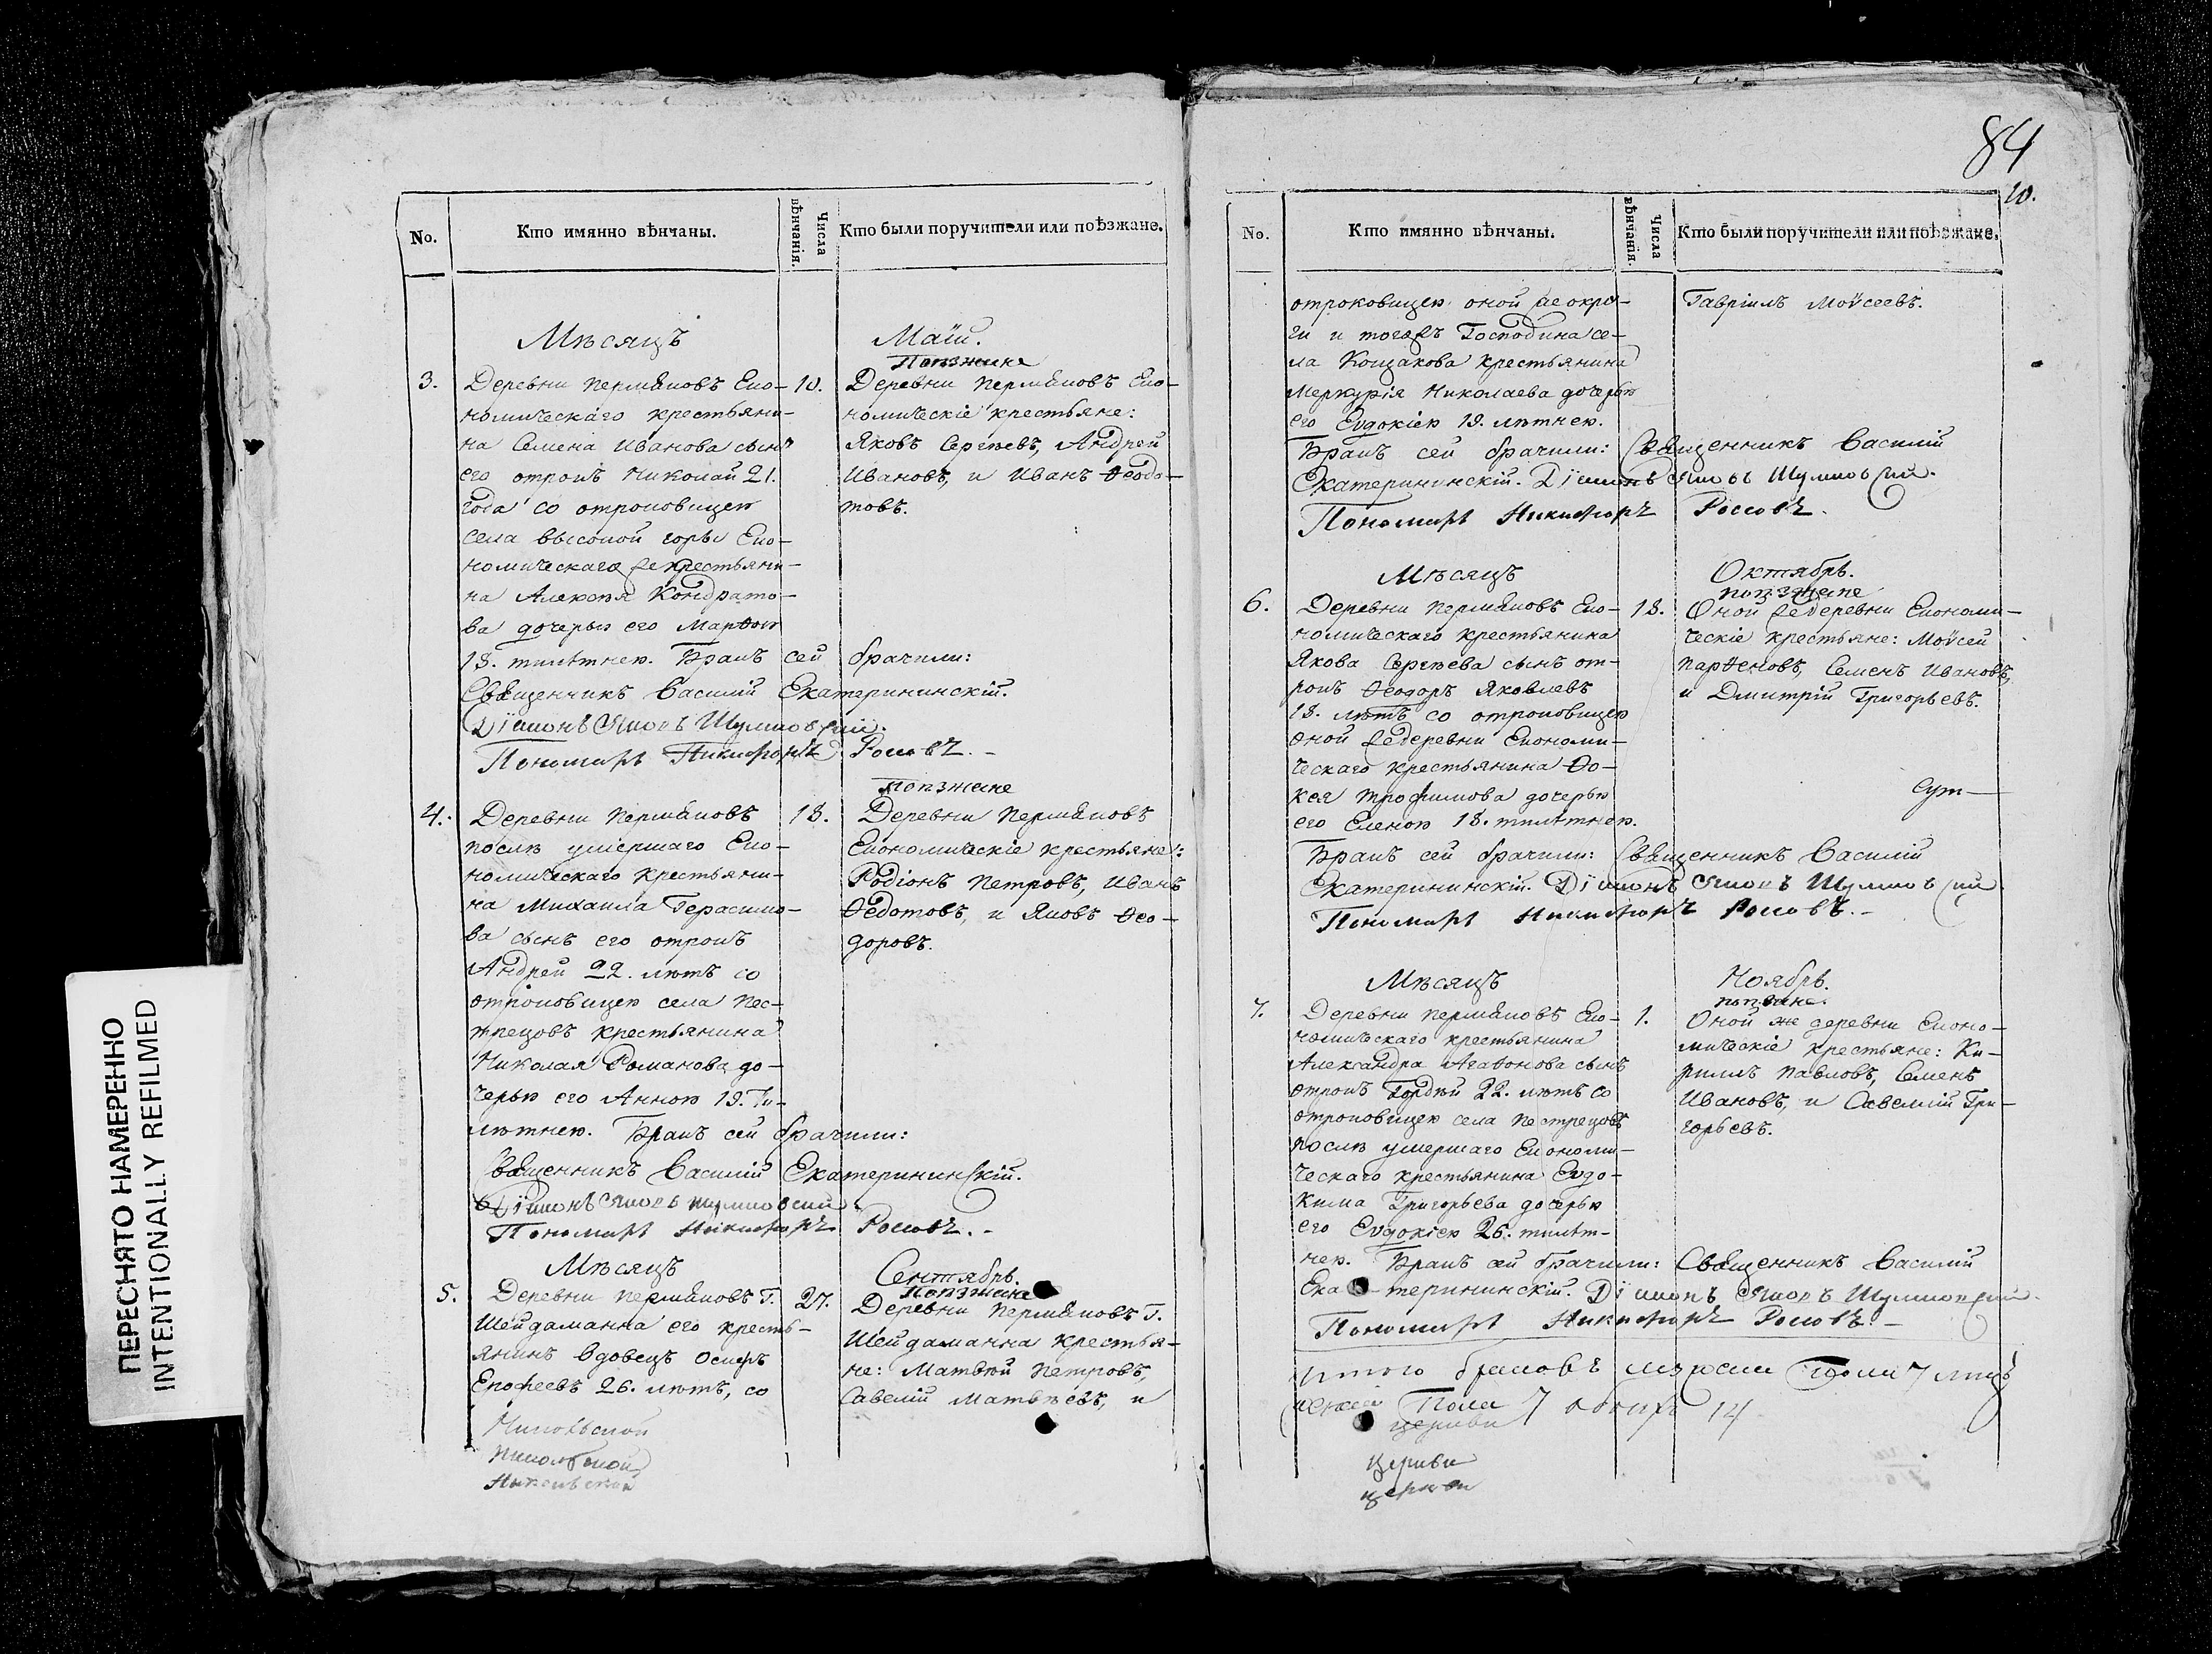 84
10.
No.
Кто имянно вѣнчаны.
Числа вѣнчанія.
Кто были поручители или поѣзжане.
Мѣсяцъ
Маій.
Поѣзжане
3.
Деревни Пермяковъ Еко-
номическаго крестьяни-
на Семена Иванова сынъ
его отрокъ Николай 21.
года со отроковицею
села высокой горы Еко-
номическаго же крестьяни-
на Алексѣя Кондрато-
ва дочерью его Марѳою
18. тилѣтнею. Бракъ сей брачили:
Священникъ Василій Екатерининскій.
Діаконъ Яковъ Шумковскій.
Пономарь Никифоръ Россовъ.-
10.
Деревни Пермяковъ Еко-
номическіе крестьяне:
Яковъ Сергѣевъ, Андрей
Ивановъ, и Иванъ Ѳедо-
товъ.
поѣзжане
4.
Деревни Пермяковъ
послѣ умершаго Еко-
номическаго крестьяни-
на Михаила Герасимо-
ва сынъ его отрокъ
Андрей 22. лѣтъ со
отроковицею села Пес-
трецовъ крестьянина
Николая Романова до-
черью его Анною 19. Ти-
лѣтнею. Бракъ сей брачили:
Священникъ Василій Екатерининскій.
Діаконъ Яковъ Шумковскій
Пономарь Никифоръ Россовъ.-
18.
Деревни Пермяковъ
Економическіе крестьяне:
Родіонъ Петровъ, Иванъ
Ѳедотовъ, и Яковъ Ѳео-
доровъ.
Мѣсяцъ
Сентябрь.
Поѣзжане
5.
Деревни Пермяковъ Г.
Шейдаманна его кресть-
янинъ вдовецъ Осипъ
Ерофеевъ 26. лѣтъ, со
27.
Деревни Пермяковъ Г.
Шейдаманна крестья-
не: Матвѣй Петровъ,
Савелій Матвѣевъ, и
Никольской
Никольской
Никольской
No.
Кто имянно вѣнчаны.
Числа вѣнчанія.
Кто были поручители или поѣзжане.
отроковицею оной же окру-
ги и тогожъ Господина се-
ла Кощакова крестьянина
Меркурія Николаева дочерью
его Евдокіею 19. лѣтнею.
Гавріилъ Моѵсеевъ.
Бракъ сей брачили: Священникъ Василій
Екатерининскій. Діаконъ Яковъ Шумковскій.
Пономарь Никифоръ Россовъ.
Мѣсяцъ
Октябрь.
поѣзжане
6.
Деревни Пермяковъ Еко-
номическаго крестьянина
Якова Сергѣева сынъ от-
рокъ Ѳеодоръ Яковлевъ
18. лѣтъ со отроковицею
оной же деревни Економи-
ческаго крестьянина Ѳо-
кея Трофимова дочерью
его Еленою 18. тилѣтнею.
18.
Оной же деревни Економи-
ческіе крестьяне: Моѵсей
Парѳеновъ, Семенъ Ивановъ,
и Дмитрій Григорьевъ.
Бракъ сей брачили: Священникъ Василій
Екатерининскій. Діаконъ Яковъ Шумковскій.
Пономарь Никифоръ Россовъ.-
Мѣсяцъ
Ноябрь.
поѣзжане.
7.
Деревни Пермяковъ Еко-
номическаго крестьянина
Александра Агаѳонова сынъ
отрокъ Гордѣй 22. лѣтъ со
отроковицею села Пестрецовъ
послѣ умершаго Економи-
ческаго крестьянина Евдо-
кима Григорьева дочерью
его Евдокіею 26. тилѣт-
нею. Бракъ сей брачили: Священникъ Василій
Екатерининскій. Діаконъ Яковъ Шумковскій.
Пономарь Никифоръ Россовъ.-
1.
Оной же деревни Еконо-
мическіе крестьяне: Ки-
риллъ Павловъ, Семенъ
Ивановъ, и Савелій Гри-
горьевъ.
Итого браковъ мужска пола 7
женска Пола 7 обоихъ 14
церкви
церкви
церкви
ПЕРЕСНЯТО НАМЕРЕННО
INTENTIONALLY REFILMED